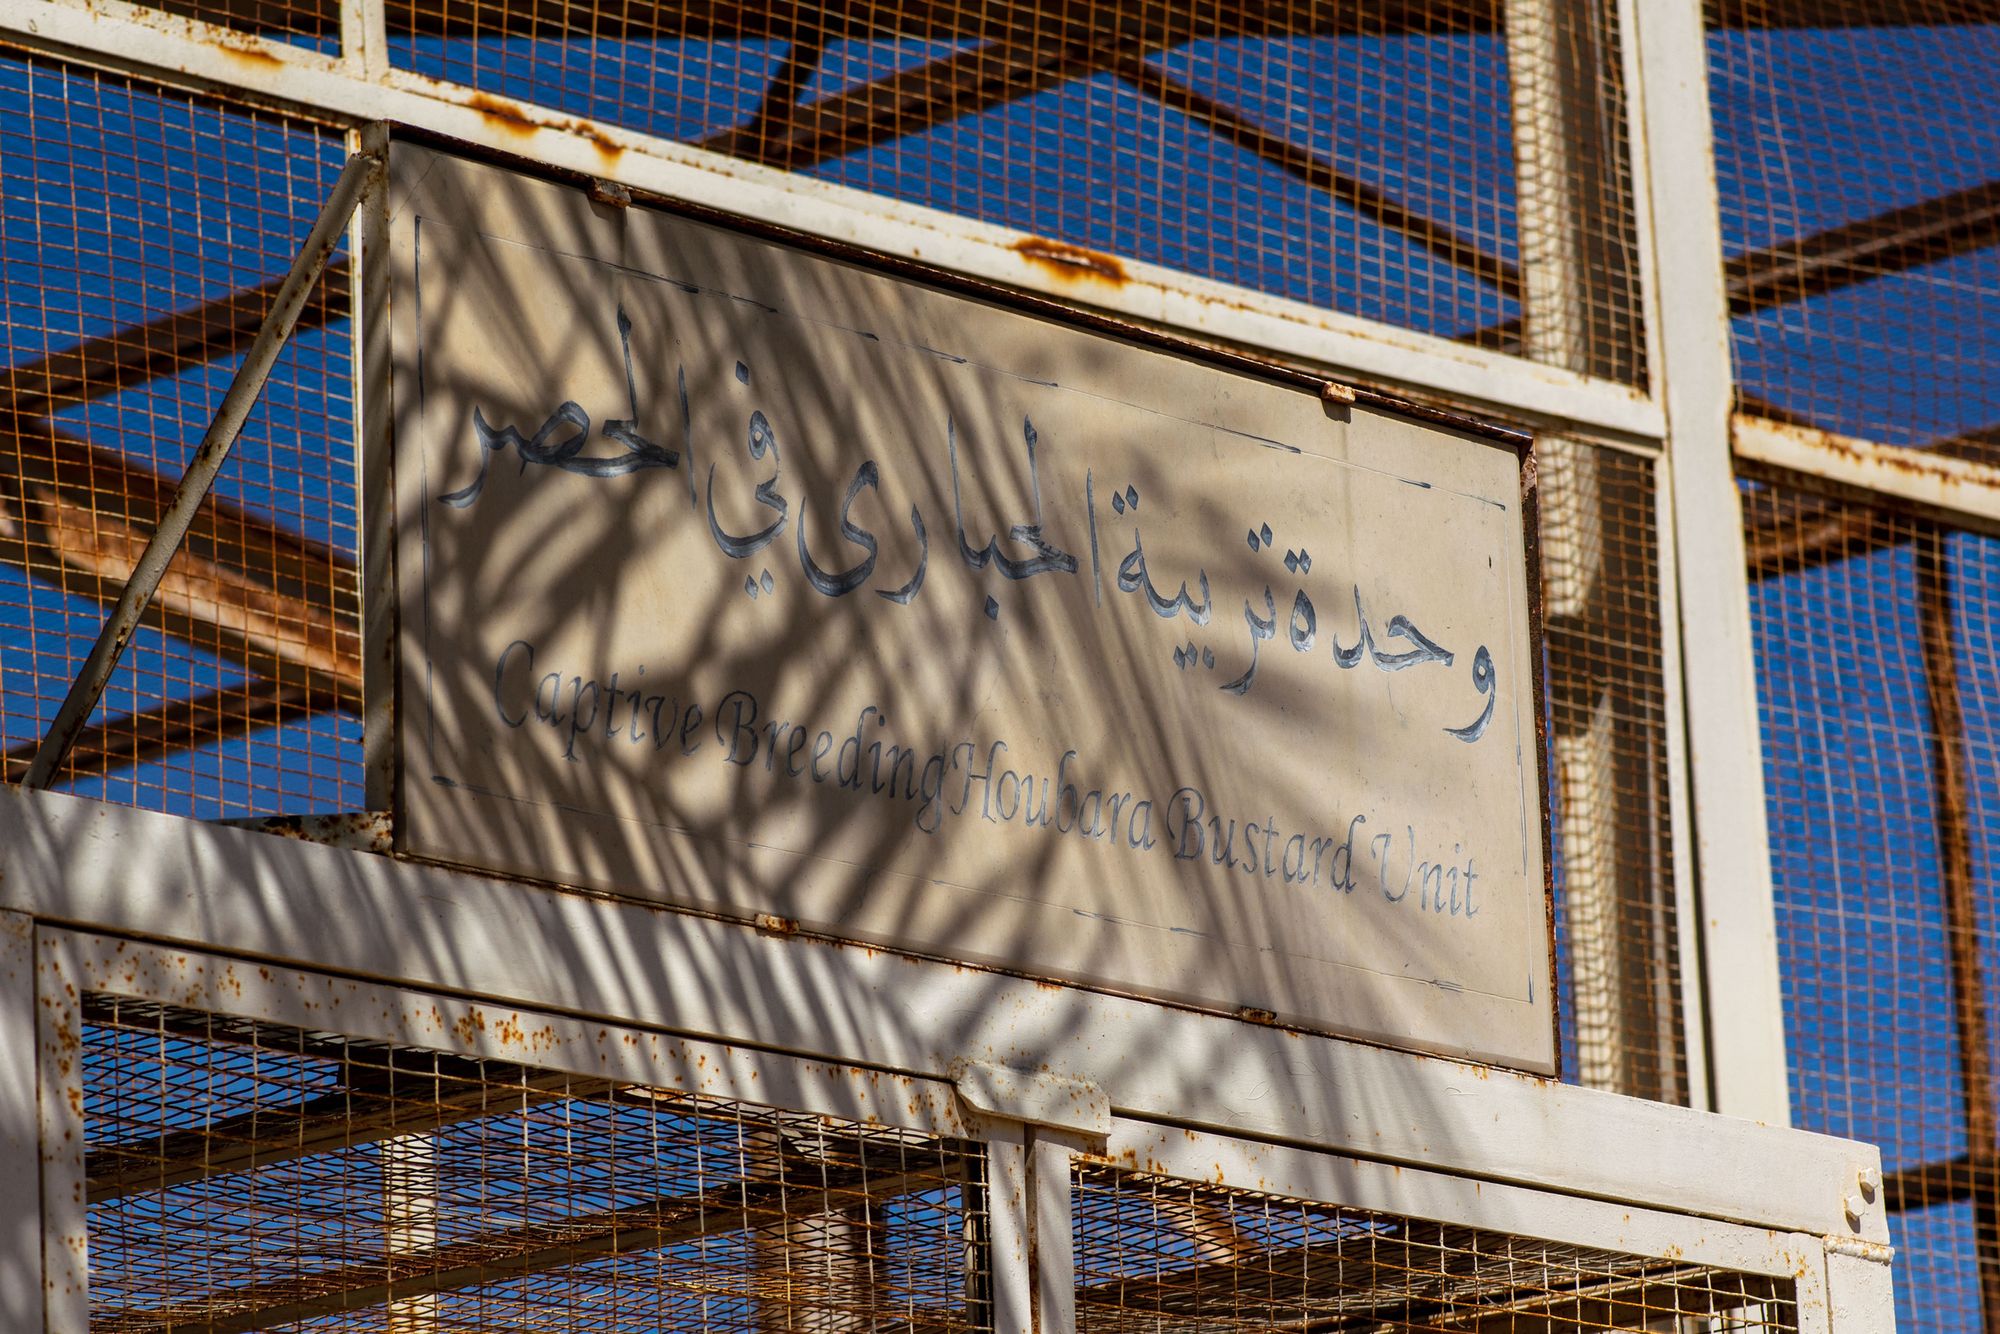 وحدة تربية الحبارى في الحصر
Captive Breeding Houbara Bustard Unit